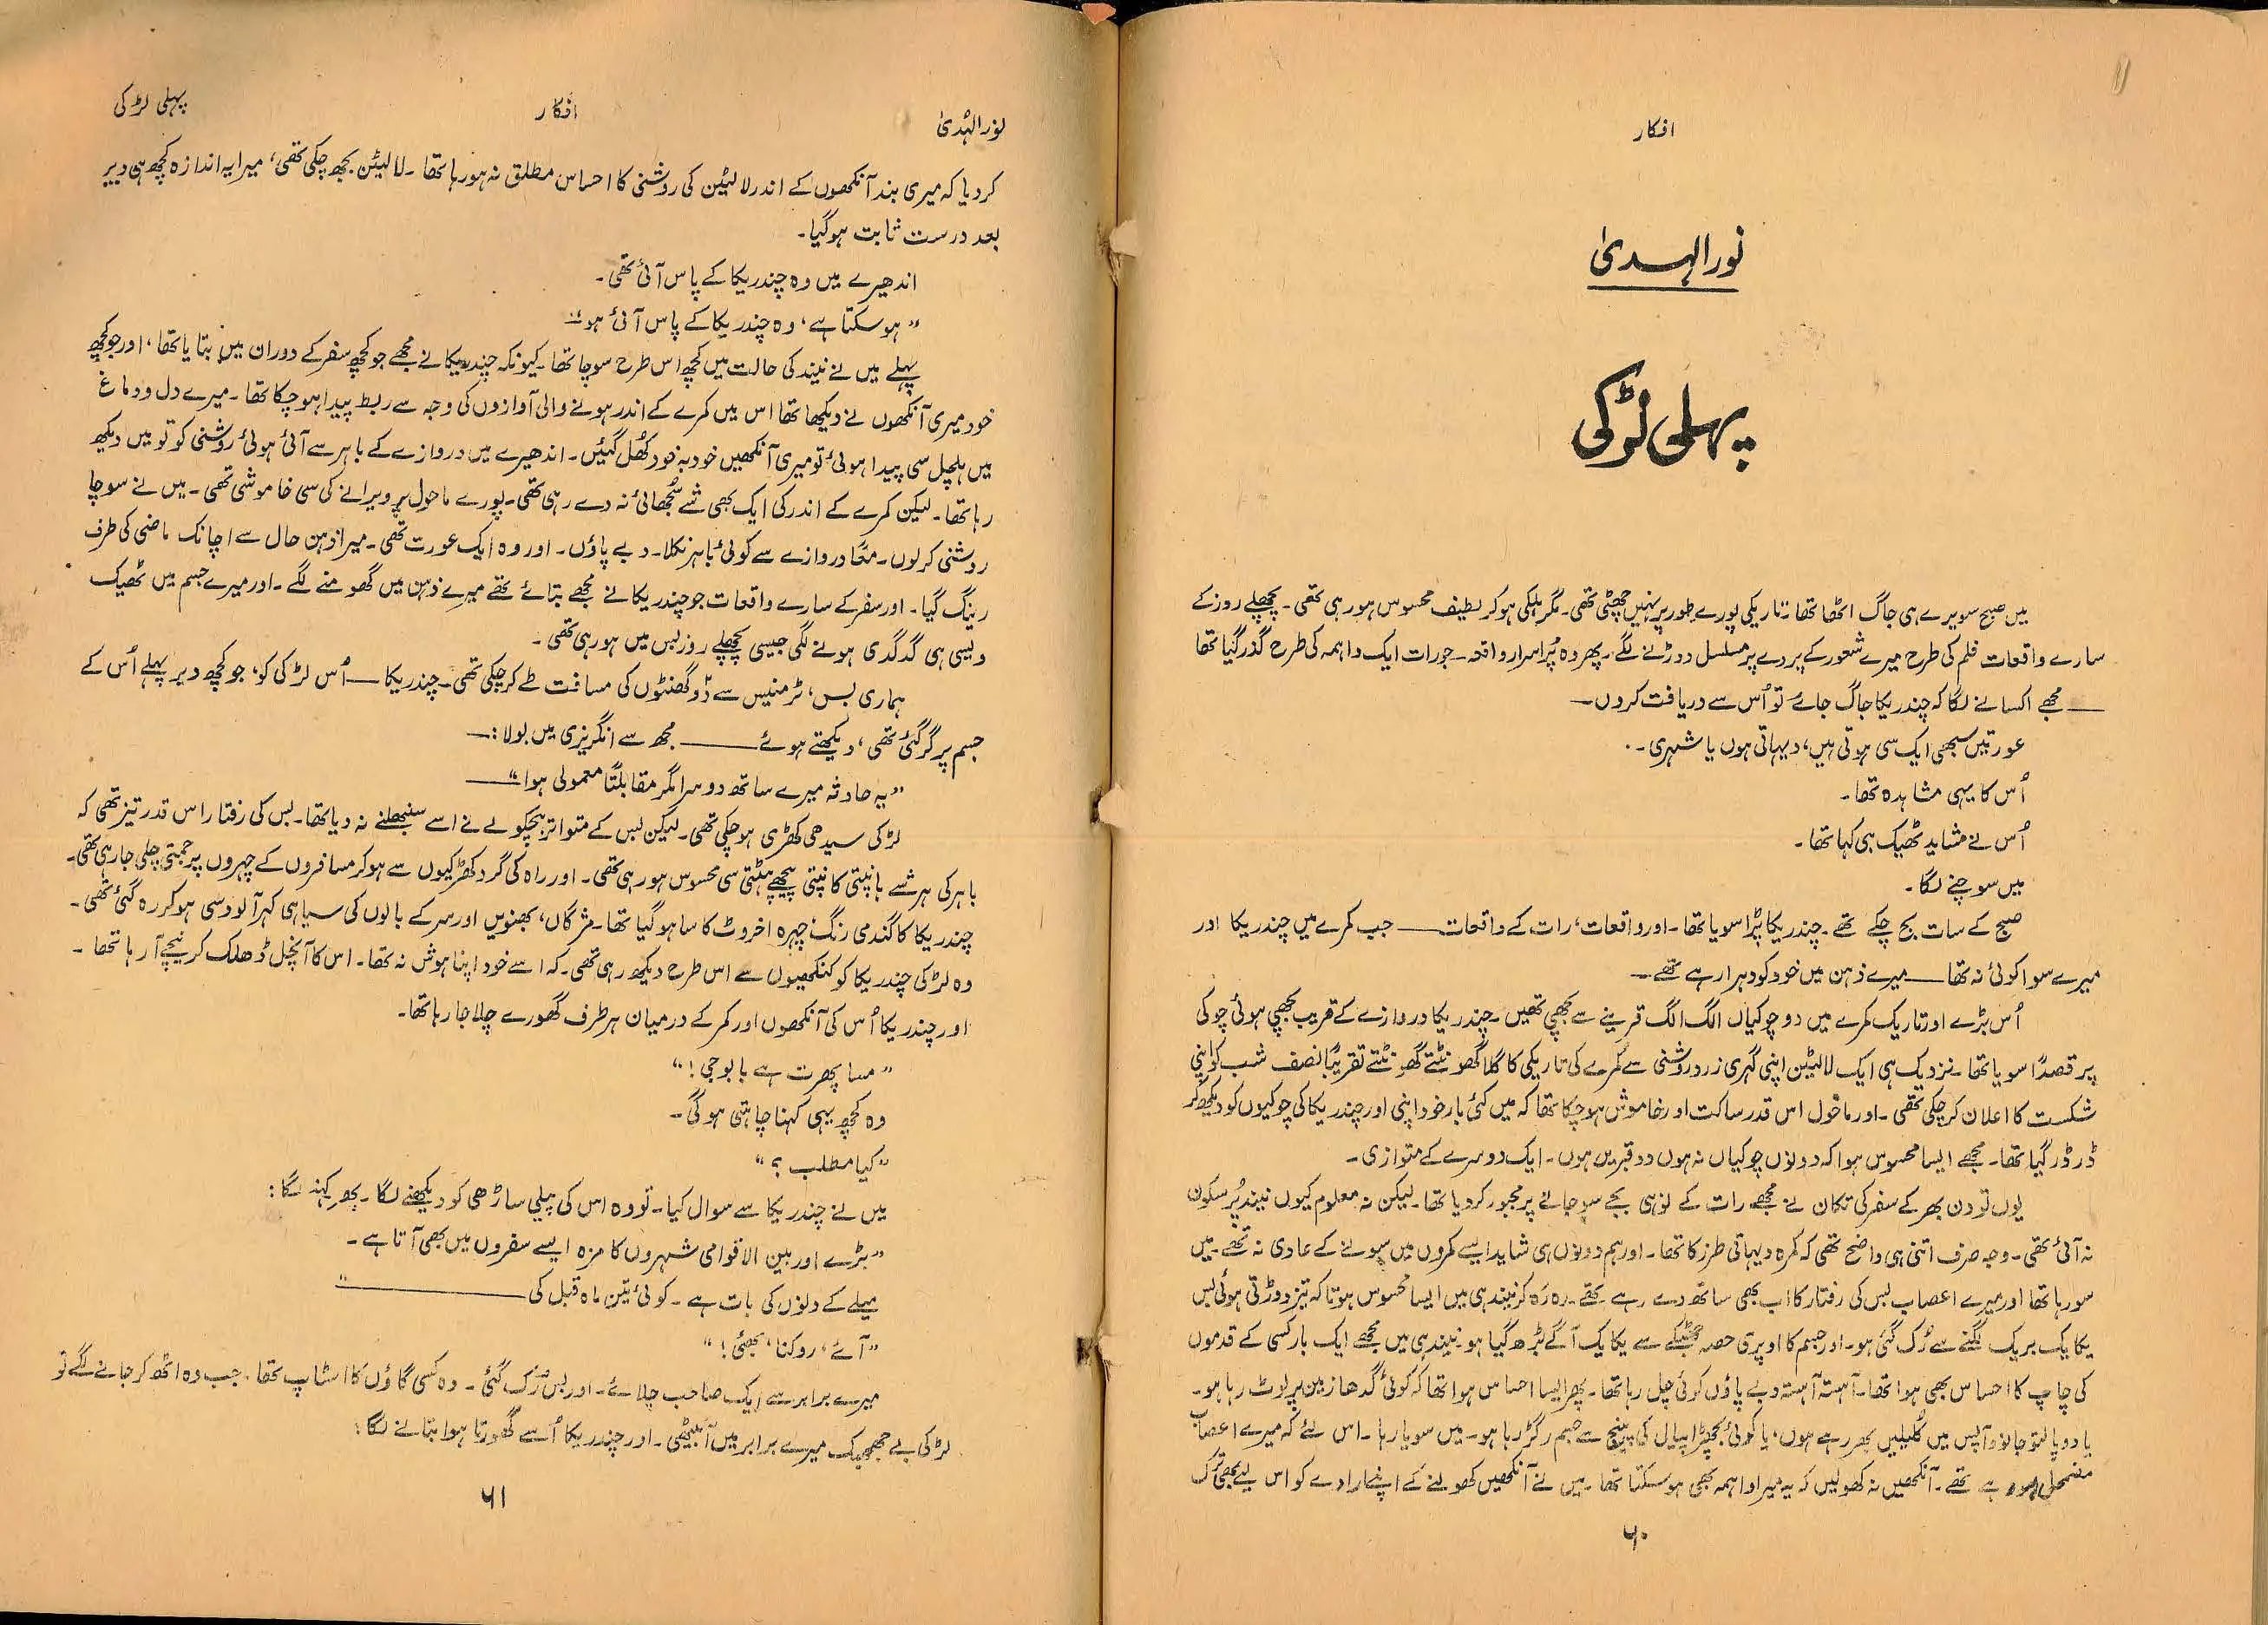 افکار
نورالہدیٰ
پہلی لڑکی
میں صبح سویرے ہی جاگ اٹھا تھا۔ تاریکی پورے طور پر نہیں چھٹی تھی۔ مگر ہلکی ہو کر لطیف محسوس ہو رہی تھی۔ پچھلے روز کے
سارے واقعات فلم کی طرح میرے شعور کے پردے پر مسلسل دوڑنے لگے۔ پھر وہ پُراسرار واقعہ۔ جو رات ایک واہمہ کی طرح گذر گیا تھا
— مجھے اکسانے لگا کہ چندریکا جاگ جائے تو اُس سے دریافت کروں۔
عورتیں سبھی ایک سی ہوتی ہیں، دیہاتی ہوں یا شہری۔
اُس کا یہی مشاہدہ تھا۔
اُس نے شاید ٹھیک ہی کہا تھا۔
میں سوچنے لگا۔
صبح کے سات بج چکے تھے۔ چندریکا پڑا سویا تھا۔ اور واقعات، رات کے واقعات — جب کمرے میں چندریکا اور
میرے سوا کوئی نہ تھا — میرے ذہن میں خود کو دہرا رہے تھے۔
اُس بڑے اور تاریک کمرے میں دو چوکیاں الگ الگ قرینے سے بچھی تھیں۔ چندریکا دروازے کے قریب بچھی ہوئی چوکی
پر قصداً سویا تھا۔ نزدیک ہی ایک لالٹین اپنی گہری زرد روشنی سے کمرے کی تاریکی کا گلا گھونٹتے گھونٹتے تقریباً نصف شب کو اپنی
شکست کا اعلان کر چکی تھی۔ اور ماحول اس قدر ساکت اور خاموش ہو چکا تھا کہ میں کئی بار خود اپنی اور چندریکا کی چوکیوں کو دیکھ کر
ڈر ڈر گیا تھا۔ مجھے ایسا محسوس ہوا کہ دونوں چوکیاں نہ ہوں دو قبریں ہوں۔ ایک دوسرے کے متوازی۔
یوں تو دن بھر کے سفر کی تکان نے مجھے رات کے نو ہی بجے سو جانے پر مجبور کر دیا تھا۔ لیکن نہ معلوم کیوں نیند پُرسکون
نہ آئی تھی۔ وجہ صرف اتنی ہی واضح تھی کہ کمرہ دیہاتی طرز کا تھا۔ اور ہم دونوں ہی شاید ایسے کمروں میں سونے کے عادی نہ تھے۔ میں
سو رہا تھا اور میرے اعصاب بس کی رفتار کا اب بھی ساتھ دے رہے تھے۔ رہ رہ کر نیند ہی میں ایسا محسوس ہوتا کہ تیز دوڑتی ہوئی بس
یکایک بریک لگنے سے رُک گئی ہو۔ اور جسم کا اوپری حصہ جھٹکے سے یکایک آگے بڑھ گیا ہو۔ نیند ہی میں مجھے ایک بار کسی کے قدموں
کی چاپ کا احساس بھی ہوا تھا۔ آہستہ آہستہ دبے پاؤں کوئی چل رہا تھا۔ پھر ایسا احساس ہوا تھا کہ کوئی گدھا زمین پر لوٹ رہا ہو۔
یا دو پالتو جانور آپس میں کلیلیں بھر رہے ہوں، یا کوئی بچھڑا پیال کی پینج سے جسم رگڑ رہا ہو۔ میں سویا رہا۔ اس لئے کہ میرے اعصاب
مضمحل ہو رہے تھے۔ آنکھیں نہ کھولیں کہ یہ میرا واہمہ بھی ہو سکتا تھا۔ میں نے آنکھیں کھولنے کے اپنے ارادے کو اس لیے بھی ترک
۶۰
نورالہدیٰ
افکار
پہلی لڑکی
کر دیا کہ میری بند آنکھوں کے اندر لالٹین کی روشنی کا احساس مطلق نہ ہو رہا تھا۔ لالٹین بجھ چکی تھی، میرا یہ اندازہ کچھ ہی دیر
بعد درست ثابت ہو گیا۔
اندھیرے میں وہ چندریکا کے پاس آئی تھی۔
”ہو سکتا ہے، وہ چندریکا کے پاس آئی ہو“
پہلے میں نے نیند کی حالت میں کچھ اس طرح سوچا تھا۔ کیونکہ چندریکا نے مجھے جو کچھ سفر کے دوران میں بتایا تھا، اور جو کچھ
خود میری آنکھوں نے دیکھا تھا اس میں کمرے کے اندر ہونے والی آوازوں کی وجہ سے ربط پیدا ہو چکا تھا۔ میرے دل و دماغ
میں ہلچل سی پیدا ہوئی تو میری آنکھیں خود بہ خود کھُل گئیں۔ اندھیرے میں دروازے کے باہر سے آئی ہوئی روشنی کو تو میں دیکھ
رہا تھا۔ لیکن کمرے کے اندر کی ایک بھی شے سُجھائی نہ دے رہی تھی۔ پورے ماحول پر ویرانے کی سی خاموشی تھی۔ میں نے سوچا
روشنی کر لوں۔ معاً دروازے سے کوئی باہر نکلا۔ دبے پاؤں۔ اور وہ ایک عورت تھی۔ میرا ذہن حال سے اچانک ماضی کی طرف
رینگ گیا۔ اور سفر کے سارے واقعات جو چندریکا نے مجھے بتائے تھے میرے ذہن میں گھومنے لگے۔ اور میرے جسم میں ٹھیک
ویسی ہی گدگدی ہونے لگی جیسی پچھلے روز بس میں ہو رہی تھی۔
ہماری بس، ٹرمنیس سے دو گھنٹوں کی مسافت طے کر چکی تھی۔ چندریکا — اُس لڑکی کو، جو کچھ دیر پہلے اُس کے
جسم پر گر گئی تھی، دیکھتے ہوئے — مجھ سے انگریزی میں بولا:۔
”یہ حادثہ میرے ساتھ دوسرا مگر مقابلتاً معمولی ہوا“ —
لڑکی سیدھی کھڑی ہو چکی تھی۔ لیکن بس کے متواتر ہچکولے نے اسے سنبھلنے نہ دیا تھا۔ بس کی رفتار اس قدر تیز تھی کہ
باہر کی ہر شے ہانپتی کانپتی پیچھے ہٹتی سی محسوس ہو رہی تھی۔ اور راہ کی گرد کھڑکیوں سے ہو کر مسافروں کے چہروں پر جمتی چلی جا رہی تھی۔
چندریکا کا گندمی رنگ چہرہ اخروٹ کا سا ہو گیا تھا۔ مژگاں، بھنویں اور سر کے بالوں کی سیاہی کہر آلود سی ہو کر رہ گئی تھی۔
وہ لڑکی چندریکا کو کنکھیوں سے اس طرح دیکھ رہی تھی۔ کہ اسے خود اپنا ہوش نہ تھا۔ اس کا آنچل ڈھلک کر نیچے آ رہا تھا۔
اور چندریکا اُس کی آنکھوں اور کمر کے درمیان ہر طرف گھورے چلا جا رہا تھا۔
”مسا پھرت ہے بابو جی!“
وہ کچھ یہی کہنا چاہتی ہو گی۔
”کیا مطلب؟“
میں نے چندریکا سے سوال کیا۔ تو وہ اس کی پیلی ساڑھی کو دیکھنے لگا۔ پھر کہنے لگا:
”بڑے اور بین الاقوامی شہروں کا مزہ ایسے سفروں میں بھی آتا ہے۔
میلے کے دنوں کی بات ہے۔ کوئی تین ماہ قبل کی —“
”آئے، روکنا، بھئی!“
میرے برابر سے ایک صاحب چلائے۔ اور بس رُک گئی۔ وہ کسی گاؤں کا اسٹاپ تھا۔ جب وہ اٹھ کر جانے لگے تو
لڑکی بے جھجھک میرے برابر میں آ بیٹھی۔ اور چندریکا اُسے گھورتا ہوا بتانے لگا:
۶۱